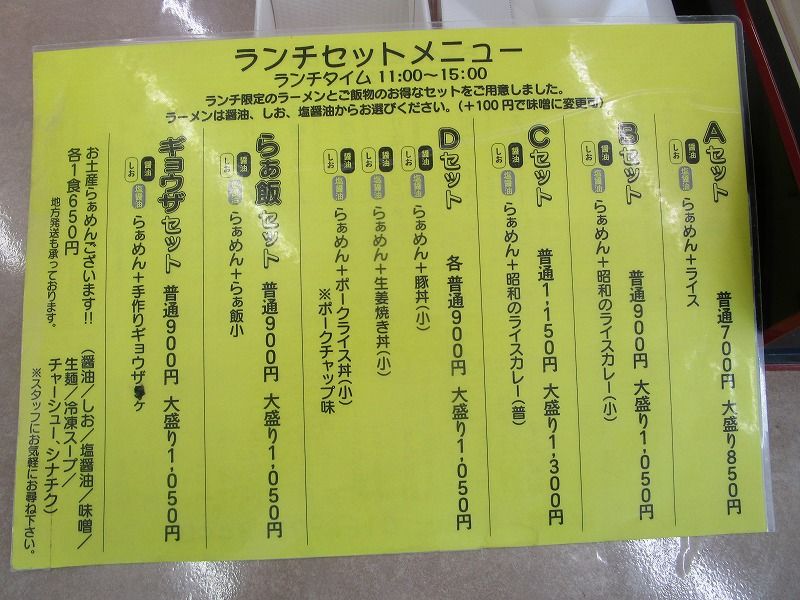 ランチセットメニュー
ランチタイム 11:00～15:00
ランチ限定のラーメンとご飯物のお得なセットをご用意しました。
ラーメンは醤油、しお、塩醤油からお選びください。(＋100円で味噌に変更可)
Aセット 普通700円 大盛り850円
醤油 しお 塩醤油 らぁめん＋ライス
Bセット 普通900円 大盛り1,050円
醤油 しお 塩醤油 らぁめん＋昭和のライスカレー(小)
Cセット 普通1,150円 大盛り1,300円
醤油 しお 塩醤油 らぁめん＋昭和のライスカレー(普)
Dセット 各 普通900円 大盛り1,050円
醤油 しお 塩醤油 らぁめん＋豚丼(小)
醤油 しお 塩醤油 らぁめん＋生姜焼き丼(小)
醤油 しお 塩醤油 らぁめん＋ポークライス丼(小)
※ポークチャップ味
らぁ飯セット 普通900円 大盛り1,050円
醤油 しお 塩醤油 らぁめん＋らぁ飯小
ギョウザセット 普通900円 大盛り1,050円
醤油 しお 塩醤油 らぁめん＋手作りギョウザ ヶ
お土産らぁめんございます!!
各1食650円
地方発送も承っております。
(醤油／しお／塩醤油／味噌／
生麺／冷凍スープ／
チャーシュー、シナチク)
※スタッフにお気軽にお尋ね下さい。